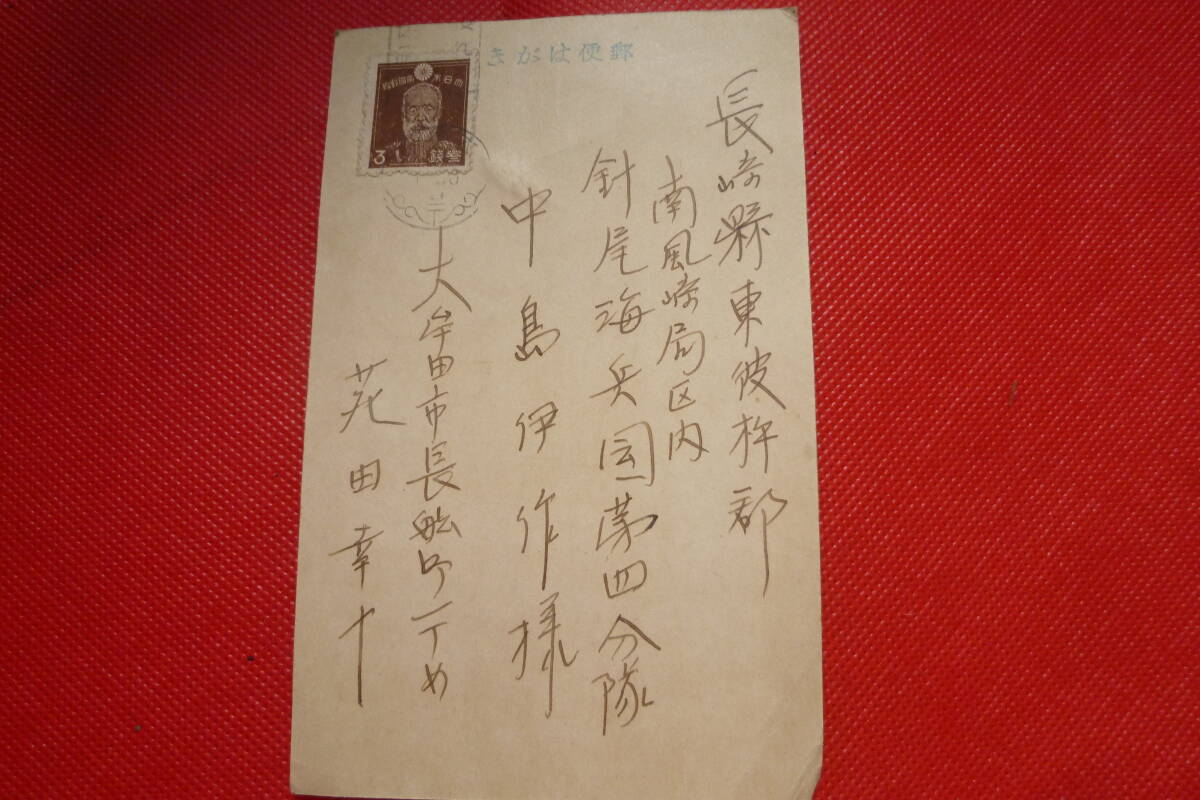 郵便はがき
大日本帝国郵便
3 銭
長崎縣東彼杵郡
南風崎局区内
針尾海兵団第四分隊
中島伊作様
大牟田市長船町一丁め
苑田幸十